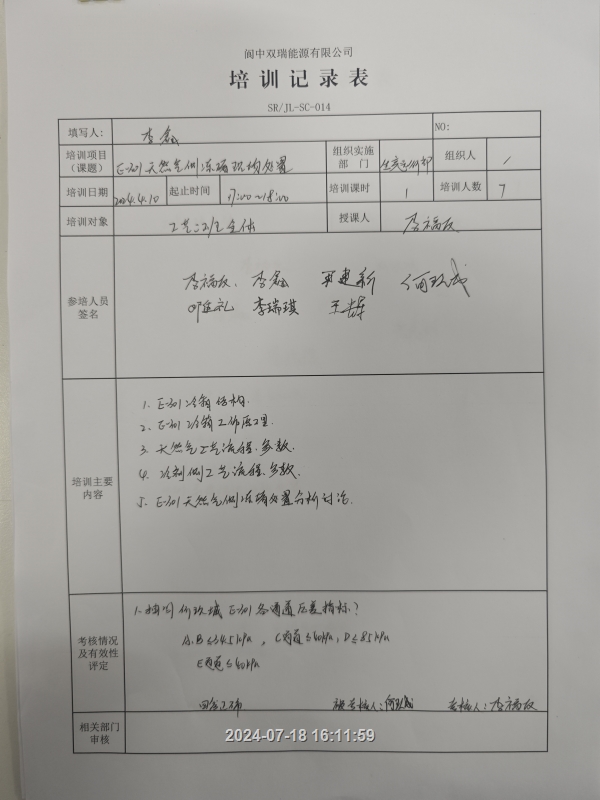 阆中双瑞能源有限公司
培训记录表
SR/JL-SC-014
填写人: 李鑫 NO:
培训项目（课题） E-301天然气侧冻堵现场处置 组织实施部门 生产运行部 组织人 /
培训日期 2024.4.10 起止时间 17:00~18:00 培训课时 1 培训人数 7
培训对象 工艺二班全体 授课人 李福友
参培人员签名
李福友、李鑫 何玖成
李瑞琪
培训主要内容
1. E-301冷箱结构.
2. E-301冷箱工作原理.
3. 天然气工艺流程、参数.
4. 冷剂侧工艺流程、参数.
5. E-301天然气侧冻堵处置分析讨论.
考核情况及有效性评定
1. 抽问何玖成 E-301各通道压差指标？
A、B≤34.5kPa，C通道≤40kPa，D≤85kPa
E通道≤40kPa
回答正确 被考核人：何玖成 考核人：李福友
相关部门审核
2024-07-18 16:11:59